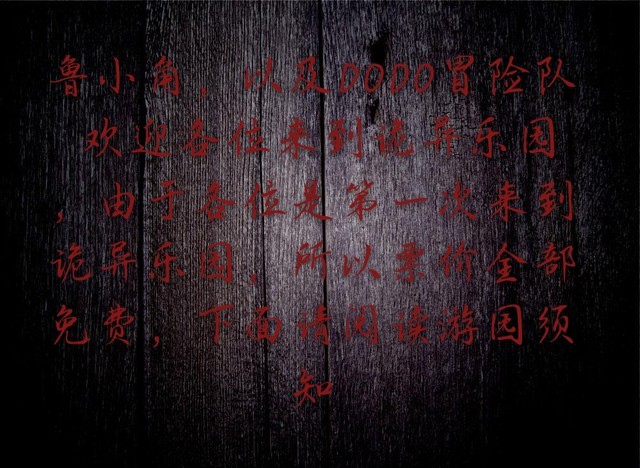 鲁小角，以及DODO冒险队
欢迎各位来到诡异乐园
，由于各位是第一次来到
诡异乐园，所以票价全部
免费，下面请阅读游园须
知